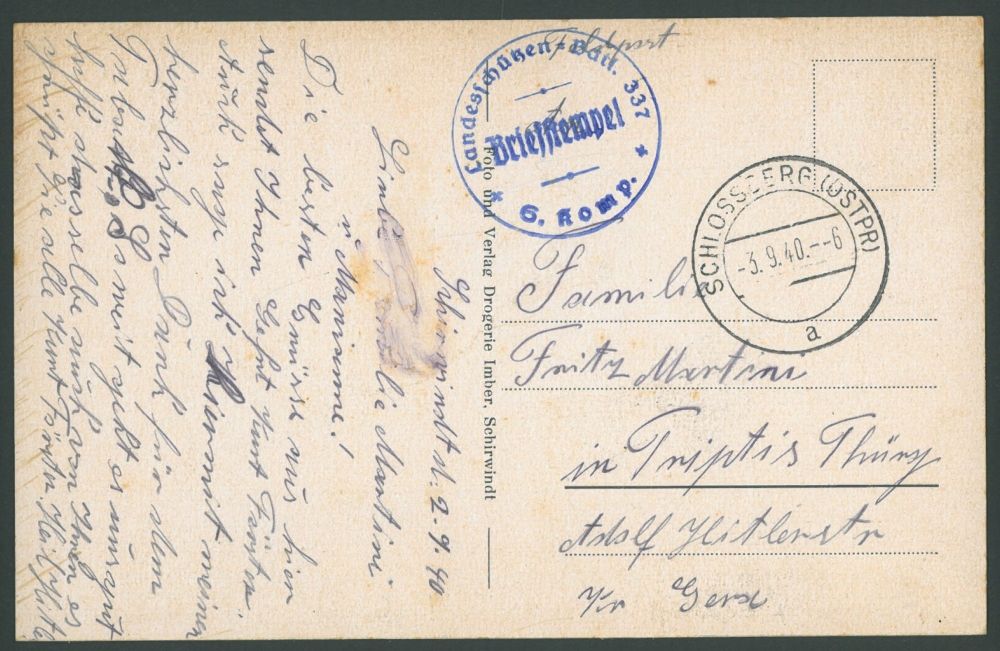 Feldpost
Landesschützen=Batl. 337
Briefstempel
* 6. Komp. *
SCHLOSSBERG (OSTPR)
-3.9.40.--6
a
Familie
Fritz Martini
in Triptis Thürg
Adolf Hitlerstr
Kr Gera
Foto und Verlag Drogerie Imber, Schirwindt
Schirwindt d. 2.9.40
Liebe Familie Martini
u Marianne!
Die besten Grüße aus hier
sendet Ihnen Gefrt Kurt Förster.
Auch sage ich hiermit meinen
herzlichsten Dank für den
Tabak. So weit geht es uns gut
hoffe dasselbe auch von Ihnen es
grüßt Sie alle Kurt Förster Heil Hitler